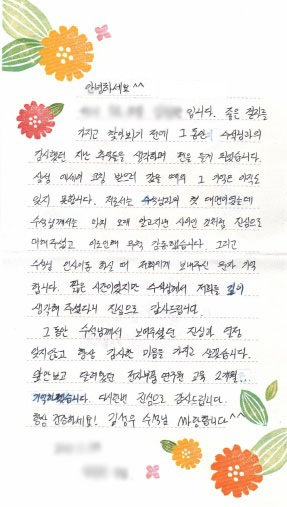 안녕하세요^^
입니다. 좋은 결과를
가지고 찾아뵙기 전에 그 동안 수석님과의
감사했던 지난 추억들을 생각하며 펜을 들게 되었습니다.
삼성 에세이 코칭 받으러 갔을 때의 그 기억은 아직도
잊지 못합니다. 저로서는 수석님과의 첫 대면이었는데
수석님께서는 마치 오래 알고지낸 사이인 것처럼 진심으로
대해주셨고 이로인해 무척 감동했습니다. 그리고
수석님 인사이동 하실 때 저희에게 보내주신 문자 기억
합니다. 짧은 시간이었지만 수석님께서 저희를 깊이
생각해 주셨다니 진심으로 감사드립니다.
그동안 수석님께서 보여주셨던 진심과 열정
잊지않고 항상 감사한 마음을 가지고 살겠습니다.
앞만보고 달려왔던 전자부품 연구원 교육 2개월...
행복했습니다. 다시한번 진심으로 감사드립니다.
항상 건강하세요! 김성우 수석님 사랑합니다^^